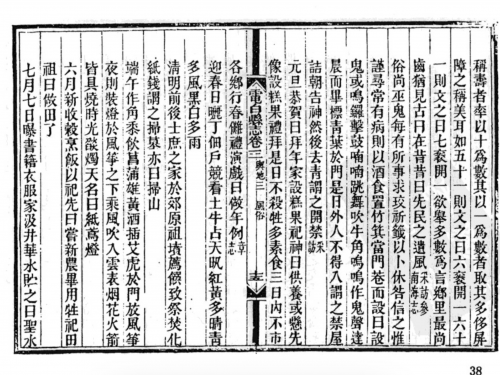 稱壽者率以十爲數其以一爲數者取其多侈屏
障之稱美耳如五十一則文之曰六袠開一六十
一則文之曰七袠開一欲舉多數爲言鄉里最尚
齒猶見古曰在昔昔曰先民之遺風采訪參南海志
俗尚巫鬼每有所事求筊祈籤以卜休咎信之惟
謹尋常有病則以酒食置竹箕當門巷而設曰設
鬼或鳴鑼擊鼓喃喃跳舞吹牛角嗚嗚作鬼聲達
晨而畢標青葉於門是日外人不得入謂之禁屋
詰朝告神然後去青謂之開禁采訪
元旦恭賀曰拜年家設糕果祀神曰供養或懸先
像設糕果禮拜是日不殺牲多素食三日內不市
電白縣志卷三 輿地三 風俗 十六
各鄉行春儺禮演戲曰做年例章志
迎春日曬丁佃戶競看土牛占天氣紅黃多晴青
多風黑白多雨
清明前後士庶之家於郊原祖墳薦餚致祭焚化
紙錢謂之掃墓亦曰掃山
端午作角黍飲菖蒲雄黃酒插艾虎於門放風箏
夜則裝燈於風箏之下乘風吹入雲表烟花火箭
皆具燒時光燄燭天名曰紙鳶燈
六月新收穀烹飯以祀先曰嘗新農畢用牲祀田
祖曰做田了
七月七日曝書籍衣服家汲井華水貯之曰聖水
38